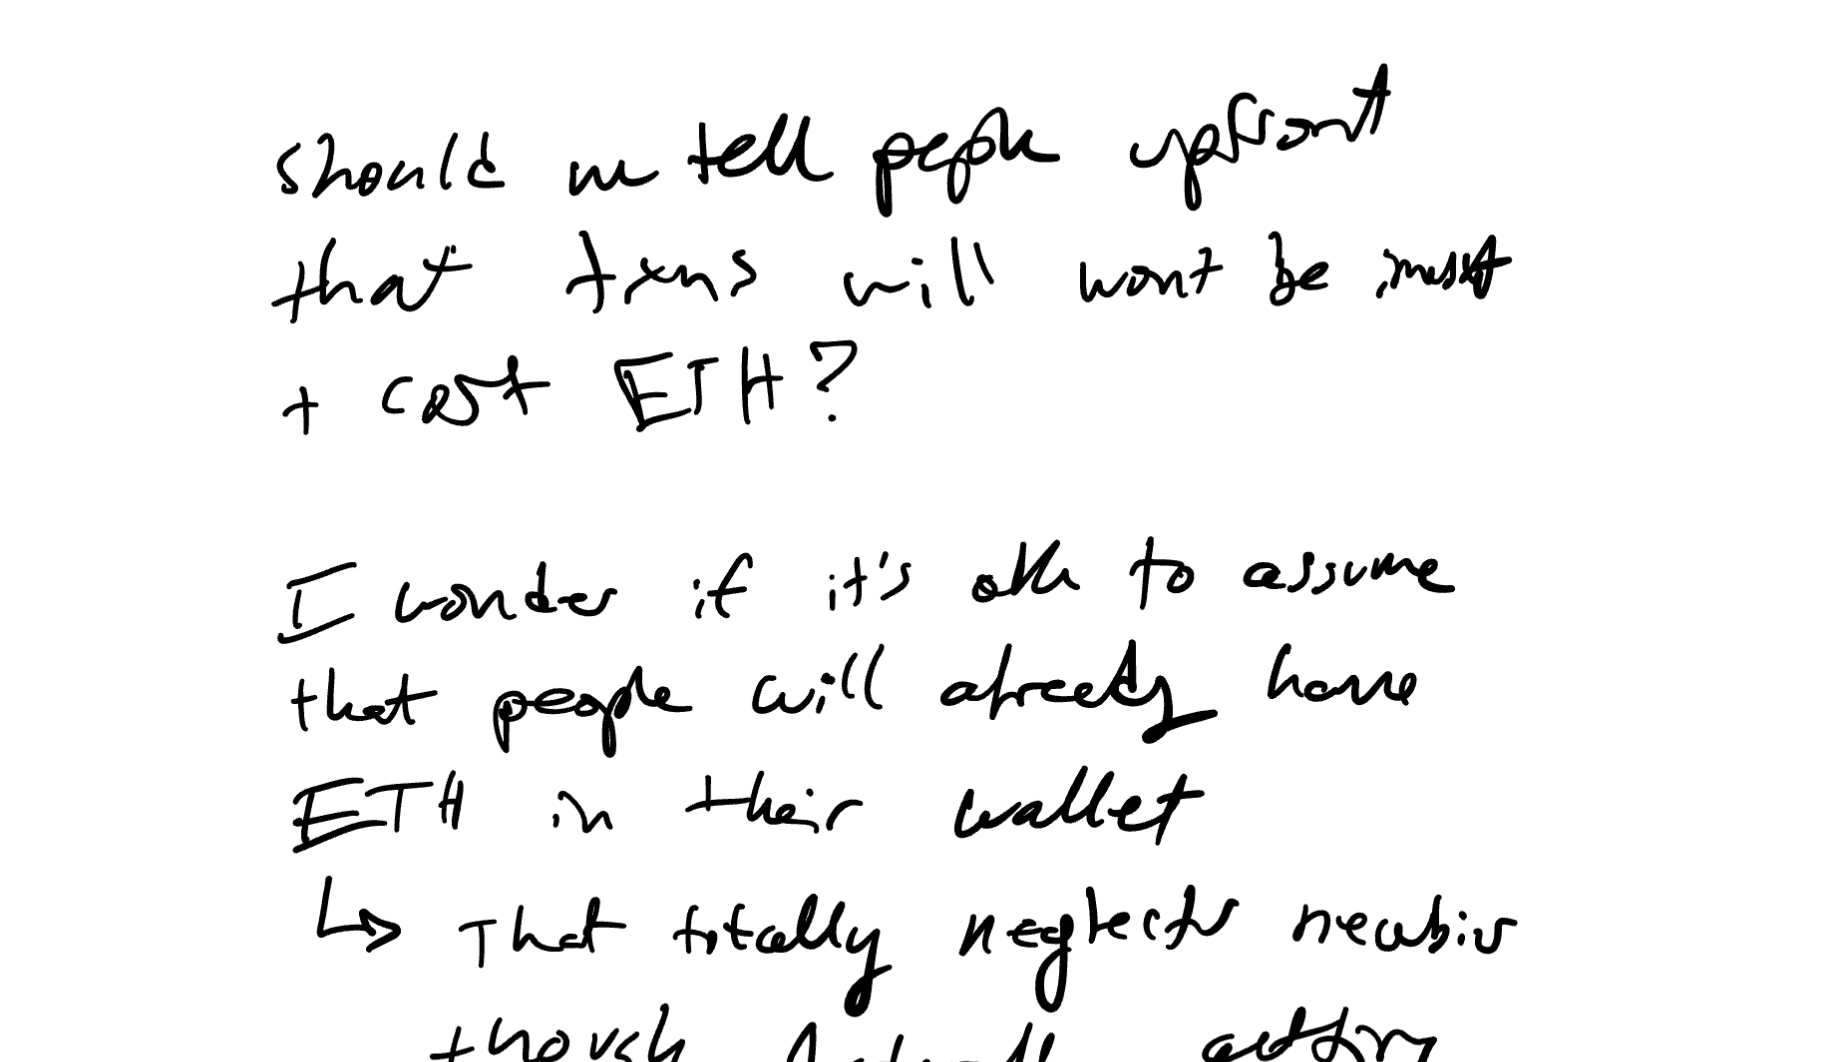 should we tell people upfront
that txns will wont be
+ cost ETH?
I wonder if it's okk to assume
that people will already have
ETH in their wallet
↳ That totally neglects newbies
though